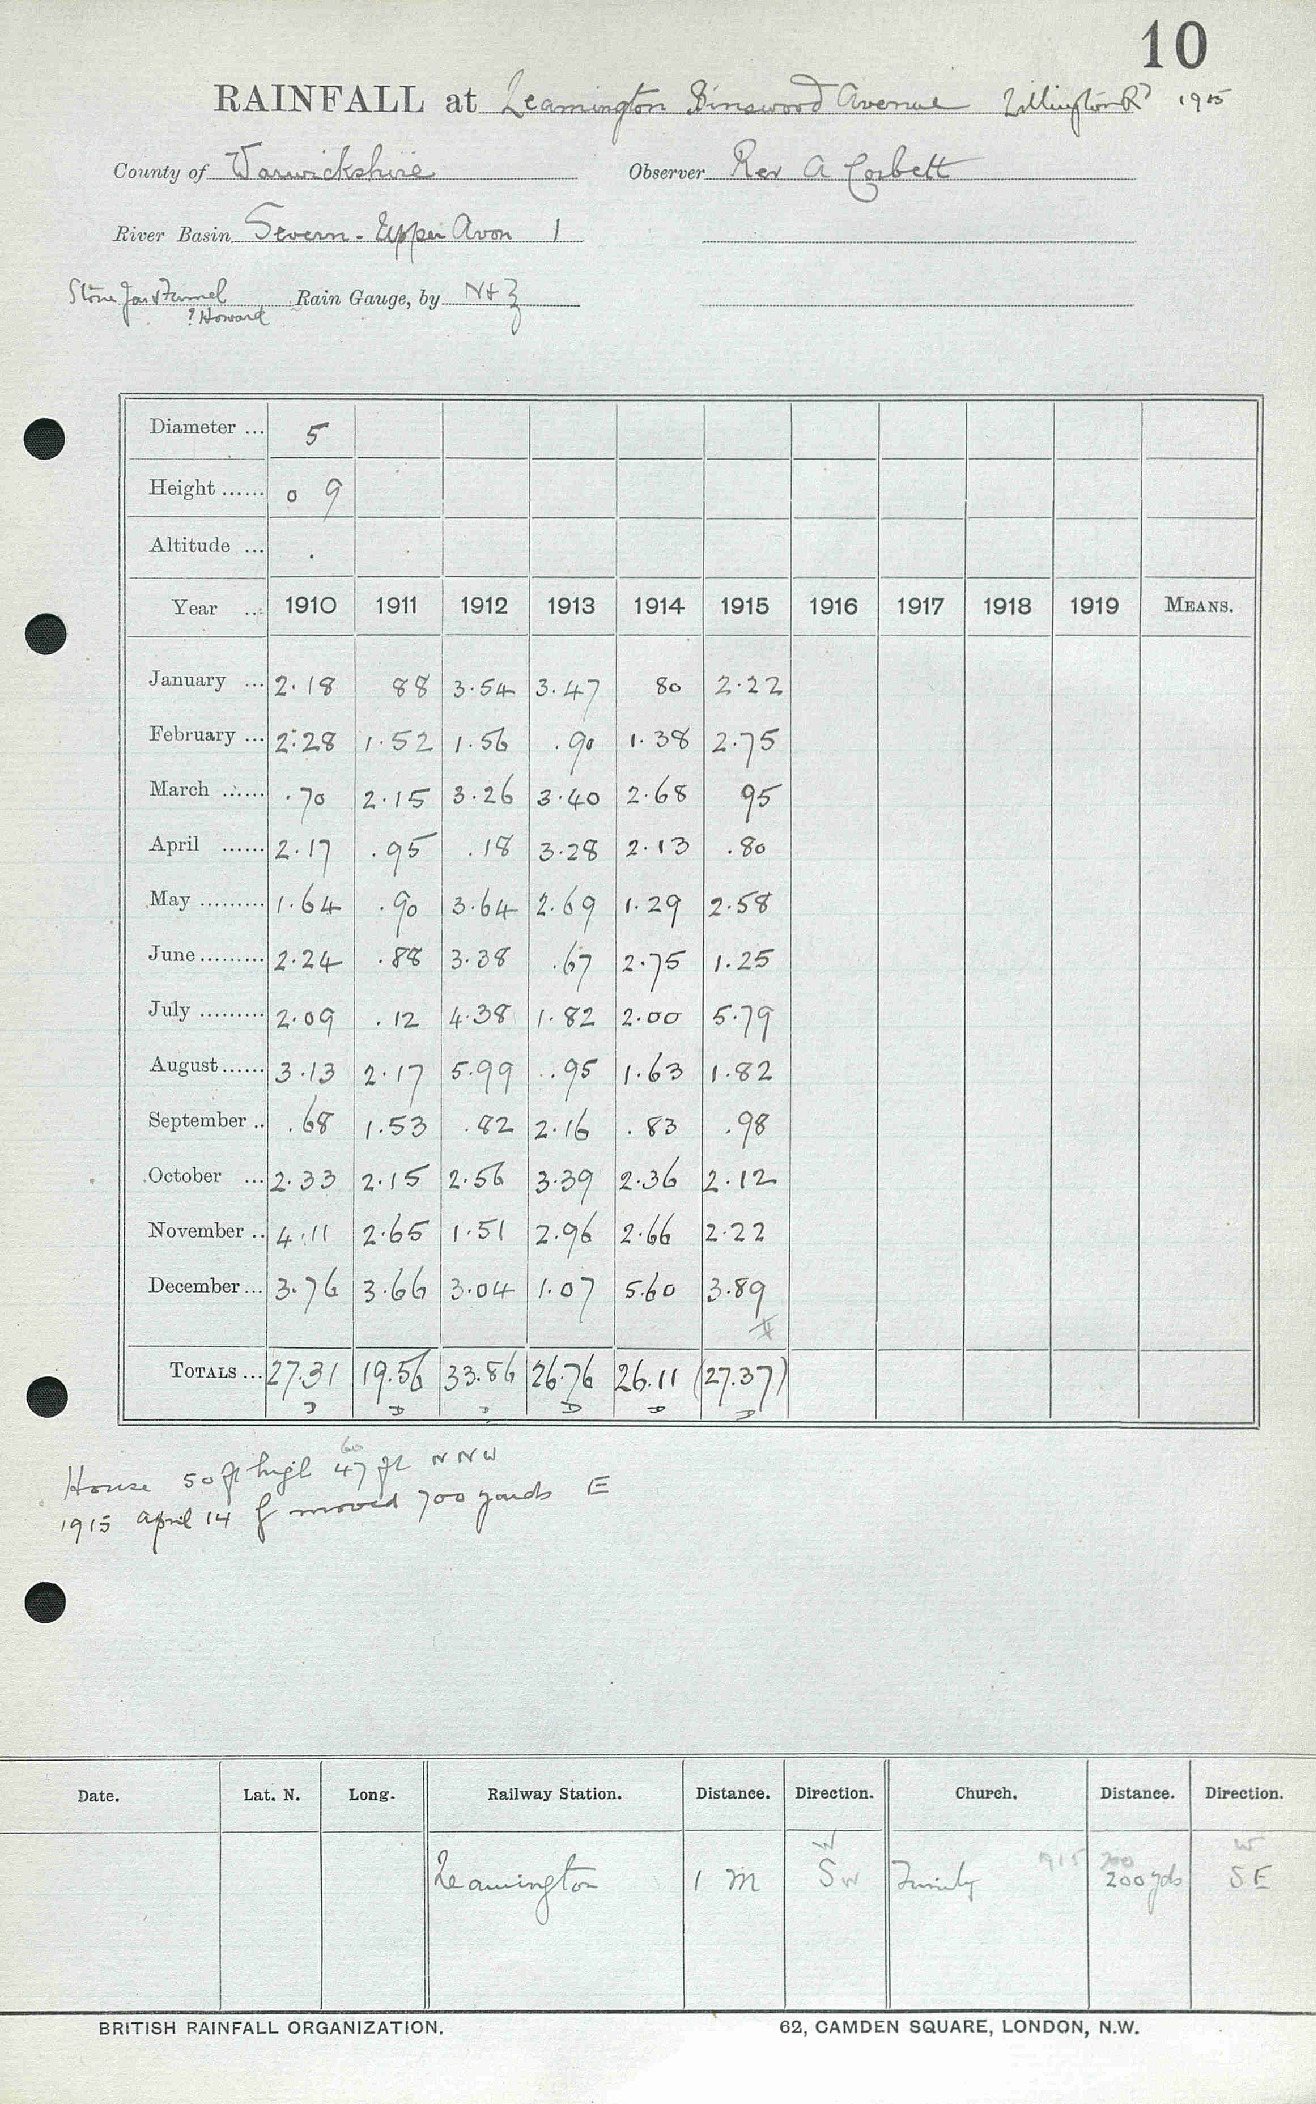 10
RAINFALL at Leamington Binswood Avenue Lillington Rd 1915
County of Warwickshire Observer Rev A Corbett
River Basin Severn - Upper Avon 1
Stone Jar & Funnel Rain Gauge, by N & Z
? Howard
Diameter ... 5
Height ...... 0 9
Altitude ... .
Year ... 1910 1911 1912 1913 1914 1915 1916 1917 1918 1919 MEANS.
January ... 2.18 88 3.54 3.47 80 2.22
February ... 2.28 1.52 1.56 .90 1.38 2.75
March ...... .70 2.15 3.26 3.40 2.68 95
April ...... 2.17 .95 .18 3.28 2.13 .80
May ......... 1.64 .90 3.64 2.69 1.29 2.58
June ......... 2.24 .88 3.38 .67 2.75 1.25
July ......... 2.09 .12 4.38 1.82 2.00 5.79
August ...... 3.13 2.17 5.99 .95 1.63 1.82
September .. .68 1.53 .82 2.16 .83 .98
October ... 2.33 2.15 2.56 3.39 2.36 2.12
November .. 4.11 2.65 1.51 2.96 2.66 2.22
December ... 3.76 3.66 3.04 1.07 5.60 3.89
TOTALS ... 27.31 19.56 33.86 26.76 26.11 (27.37)
60
House 50 ft high 47 ft NNW
1915 April 14 moved 700 yards E
Date. Lat. N. Long. Railway Station. Distance. Direction. Church. Distance. Direction.
W 1915 700 W
Leamington 1 m SW Trinity 200 yds SE
BRITISH RAINFALL ORGANIZATION. 62, CAMDEN SQUARE, LONDON, N.W.